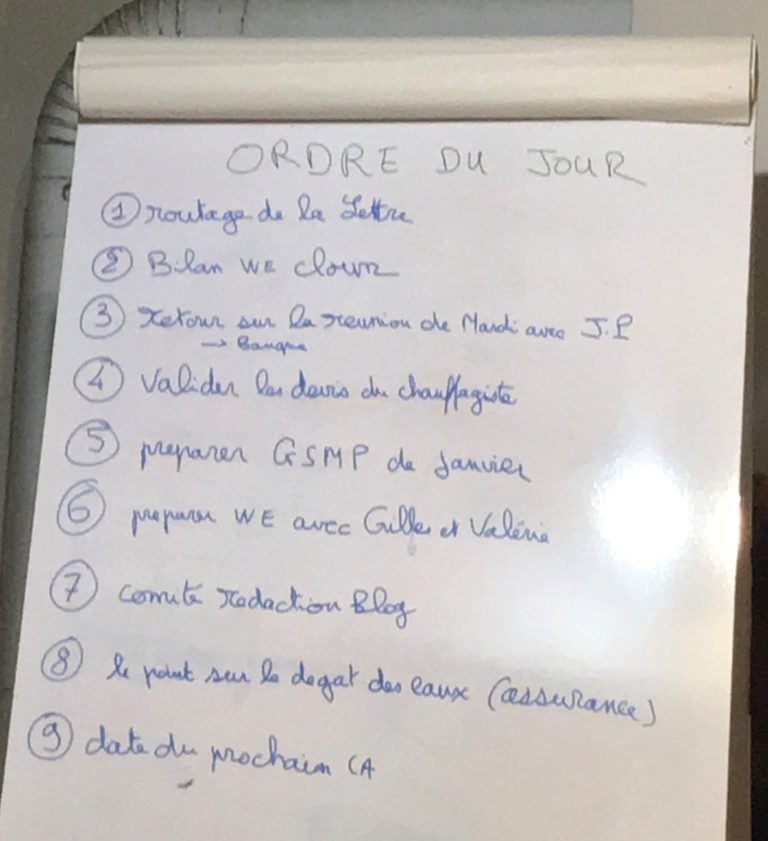 ORDRE DU JOUR
① routage de la Lettre
② Bilan WE clown
③ retour sur la reunion de Mardi avec J.P
→ Banque
④ Valider les devis du chauffagiste
⑤ preparer GSMP de Janvier
⑥ preparer WE avec Gilles et Valérie
⑦ comité redaction Blog
⑧ le point sur le degat des eaux (assurance)
⑨ date du prochain CA